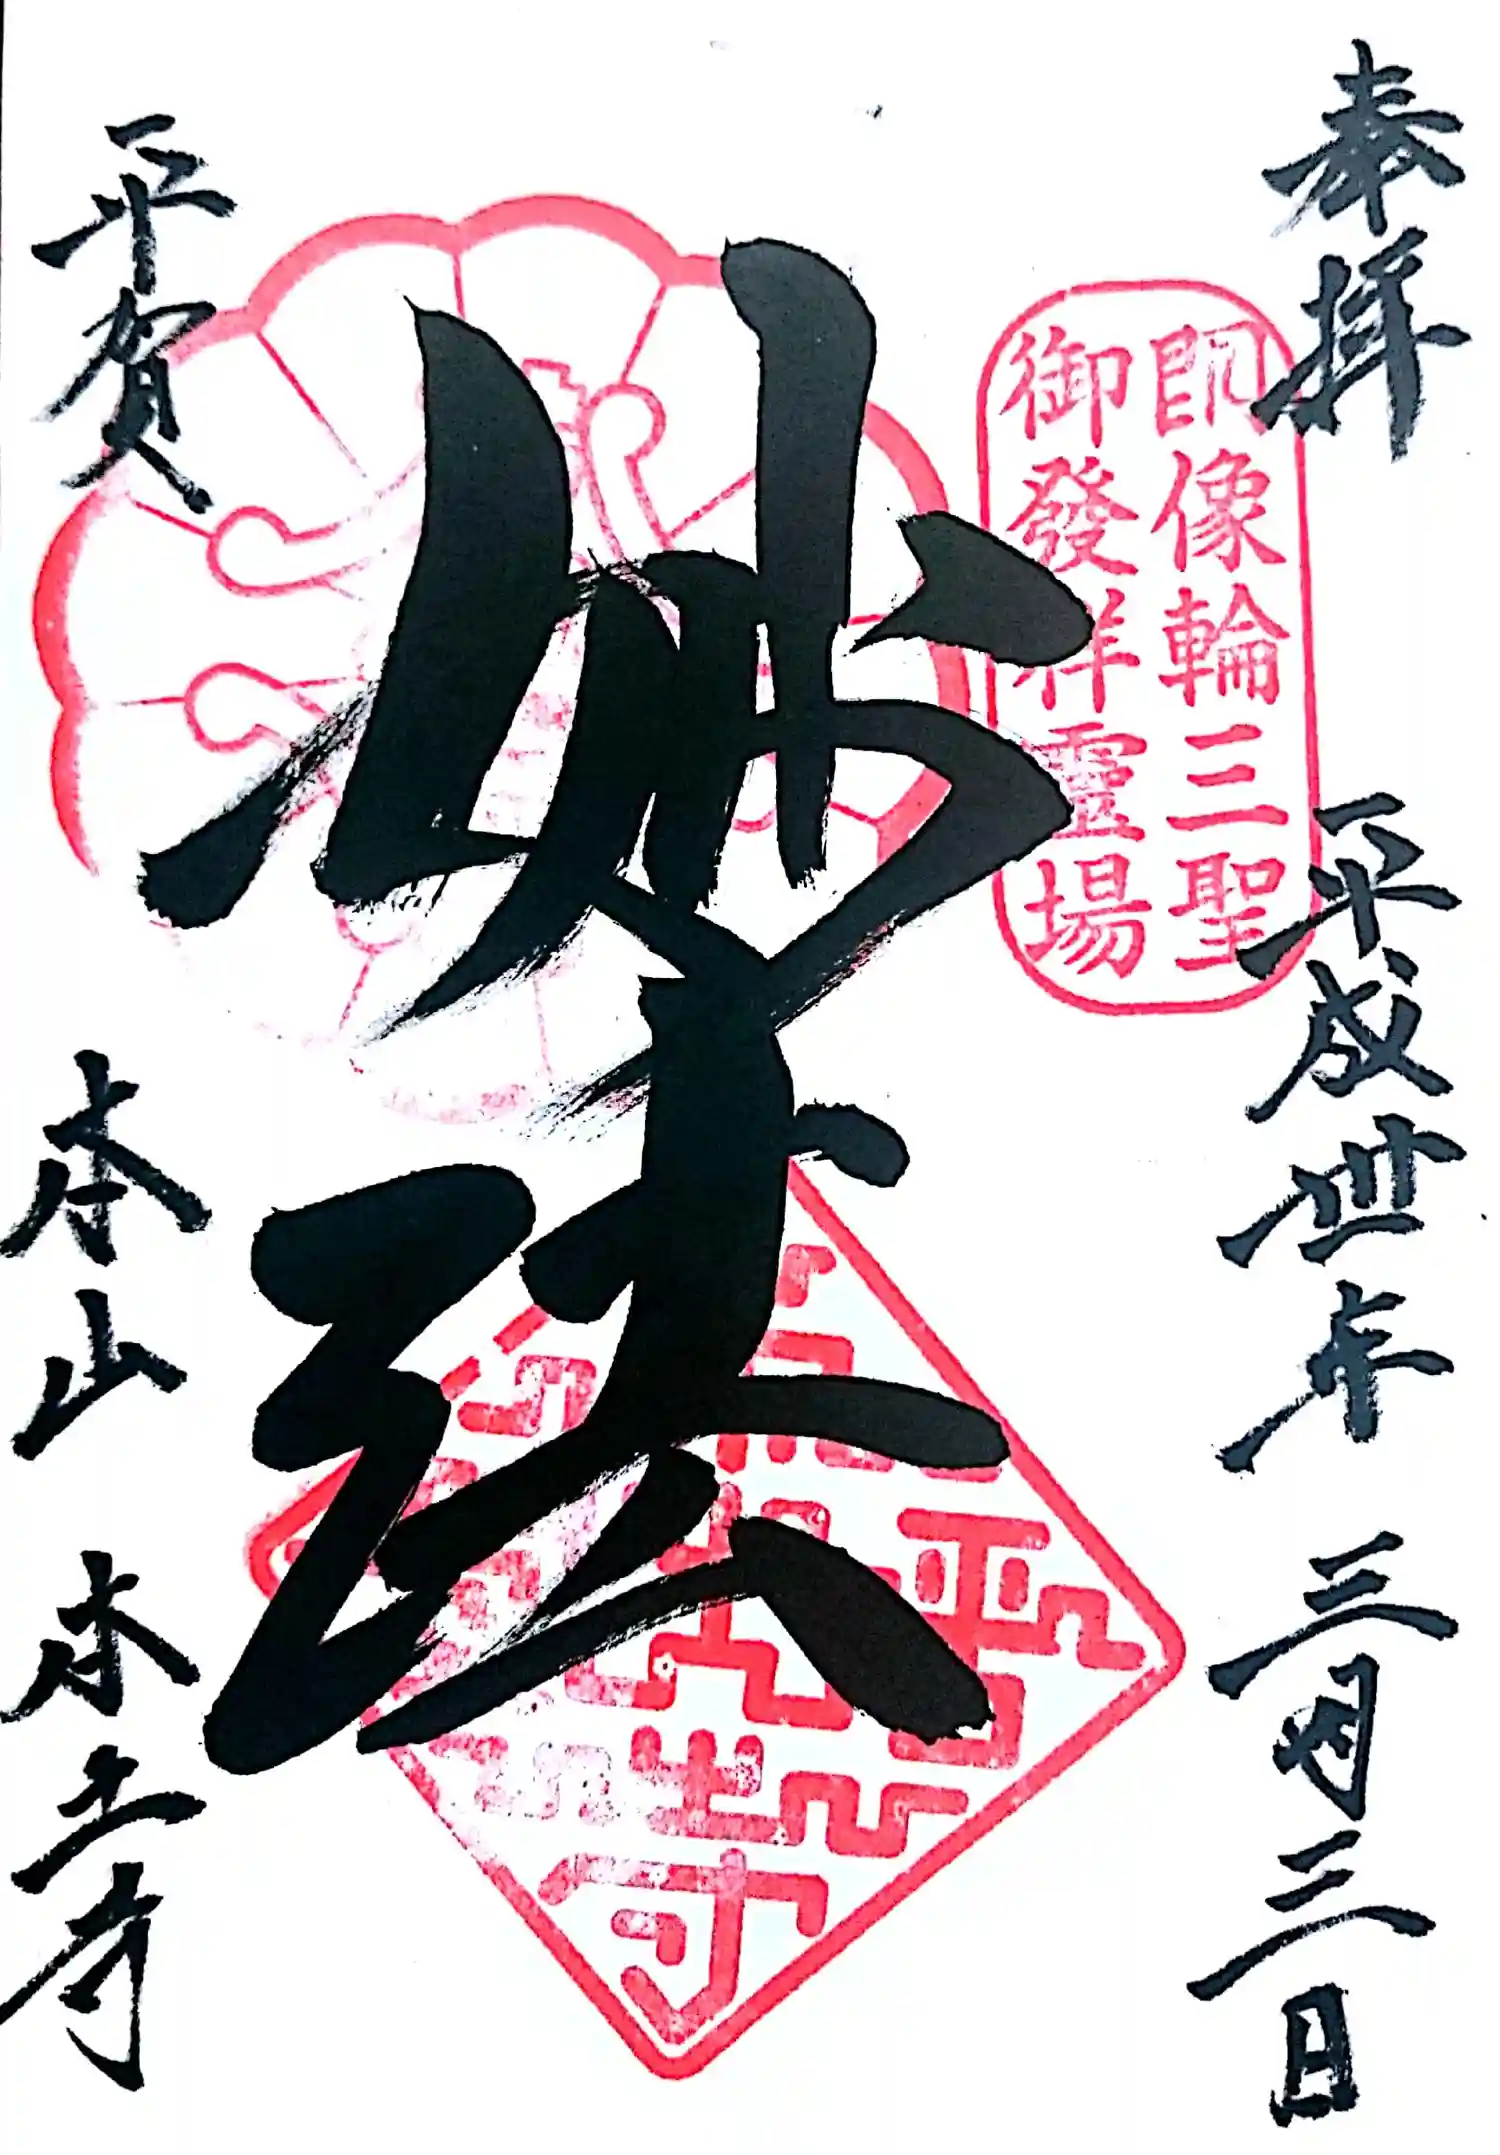 奉拝 平成丗年 三月三日
朗像輪三聖
御發祥靈場
妙法
平賀 本山 本土寺